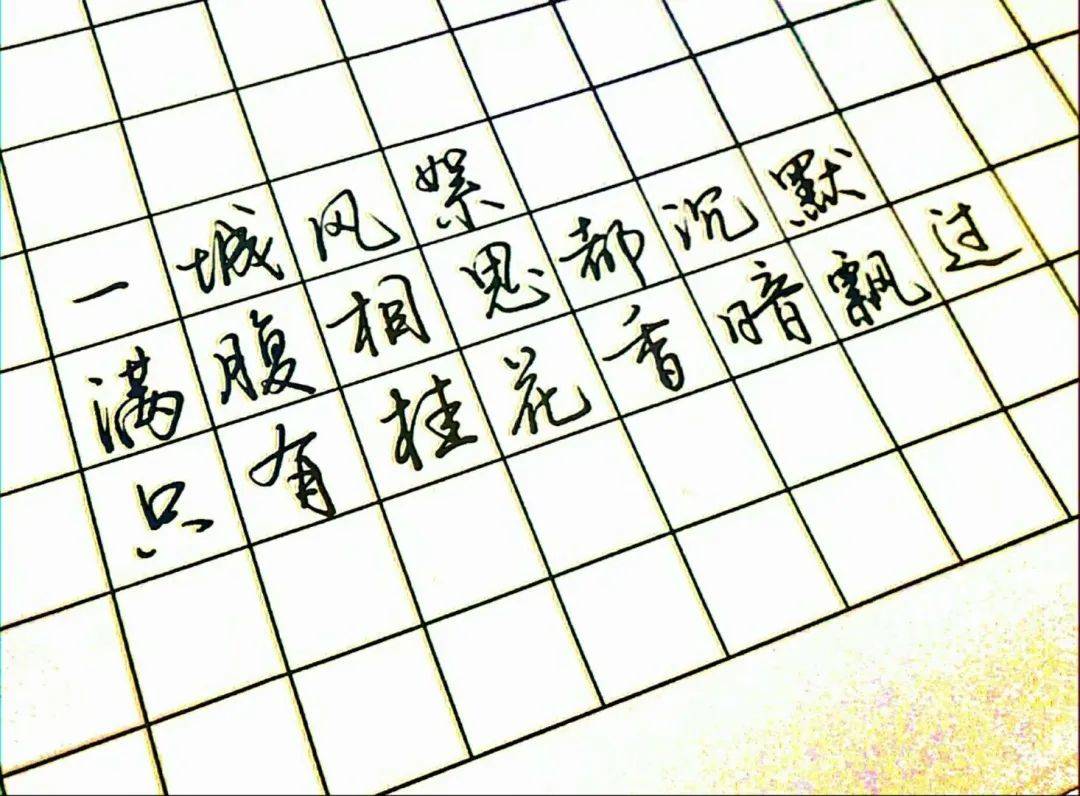 一城风絮
满腹相思都沉默
只有桂花香暗飘过